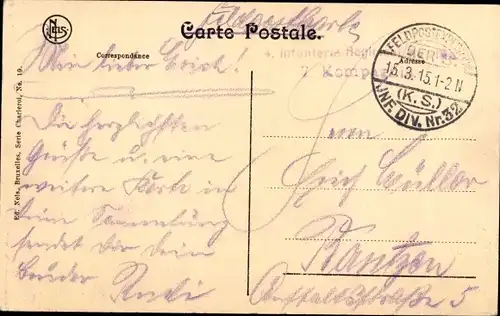 Feldpostkarte
Carte Postale.
Nels
Correspondance
Adresse
4. Infanterie Regi
7 Komp
FELDPOSTEXPED
DER
15.3.15.1-2 N
(K.S.)
INF. DIV. Nr. 32
Mein lieber Erich!
Die herzlichsten
Grüße u. eine
weitere Karte in
Deine Sammlung
sendet Dir Dein
Bruder Rudi
Herrn
Erich Müller
Bautzen
5
Ed. Nels, Bruxelles, Serie Charleroi, No. 19.